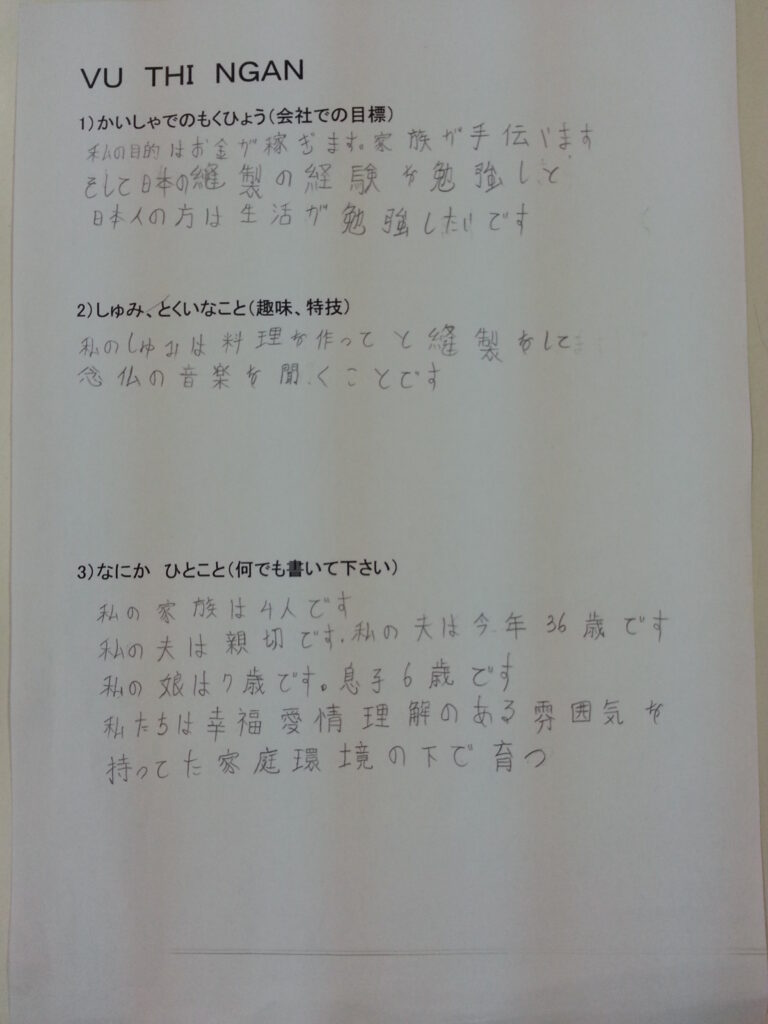 VU THI NGAN
1)かいしゃでのもくひょう(会社での目標)
私の目的はお金が稼ぎます。家族が手伝います
そして日本の縫製の経験を勉強しと
日本人の方は生活が勉強したいです
2)しゅみ、とくいなこと(趣味、特技)
私のしゅみは料理を作ってと縫製をして
念仏の音楽を聞くことです
3)なにか ひとこと(何でも書いて下さい)
私の家族は4人です
私の夫は親切です.私の夫は今年36歳です
私の娘は7歳です。息子6歳です
私たちは幸福愛情理解のある雰囲気を
持ってた家庭環境の下で育つ